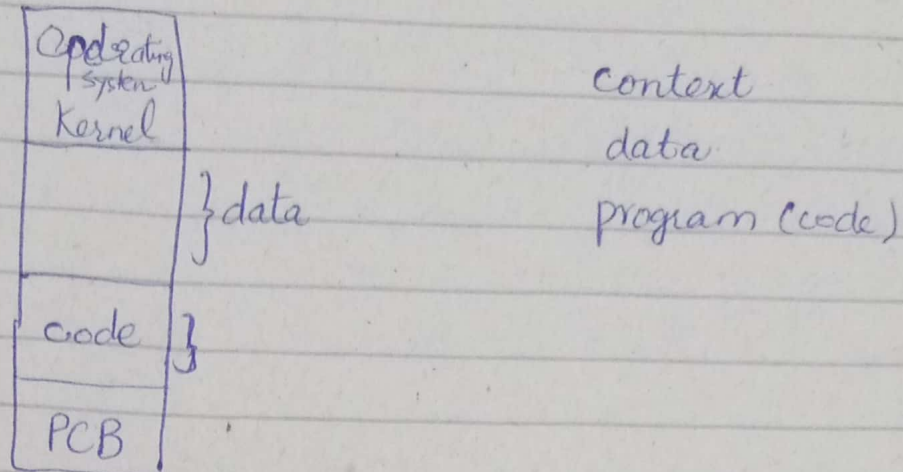 Operating
system
Kernel
} data
code }
PCB
context
data
program (code)